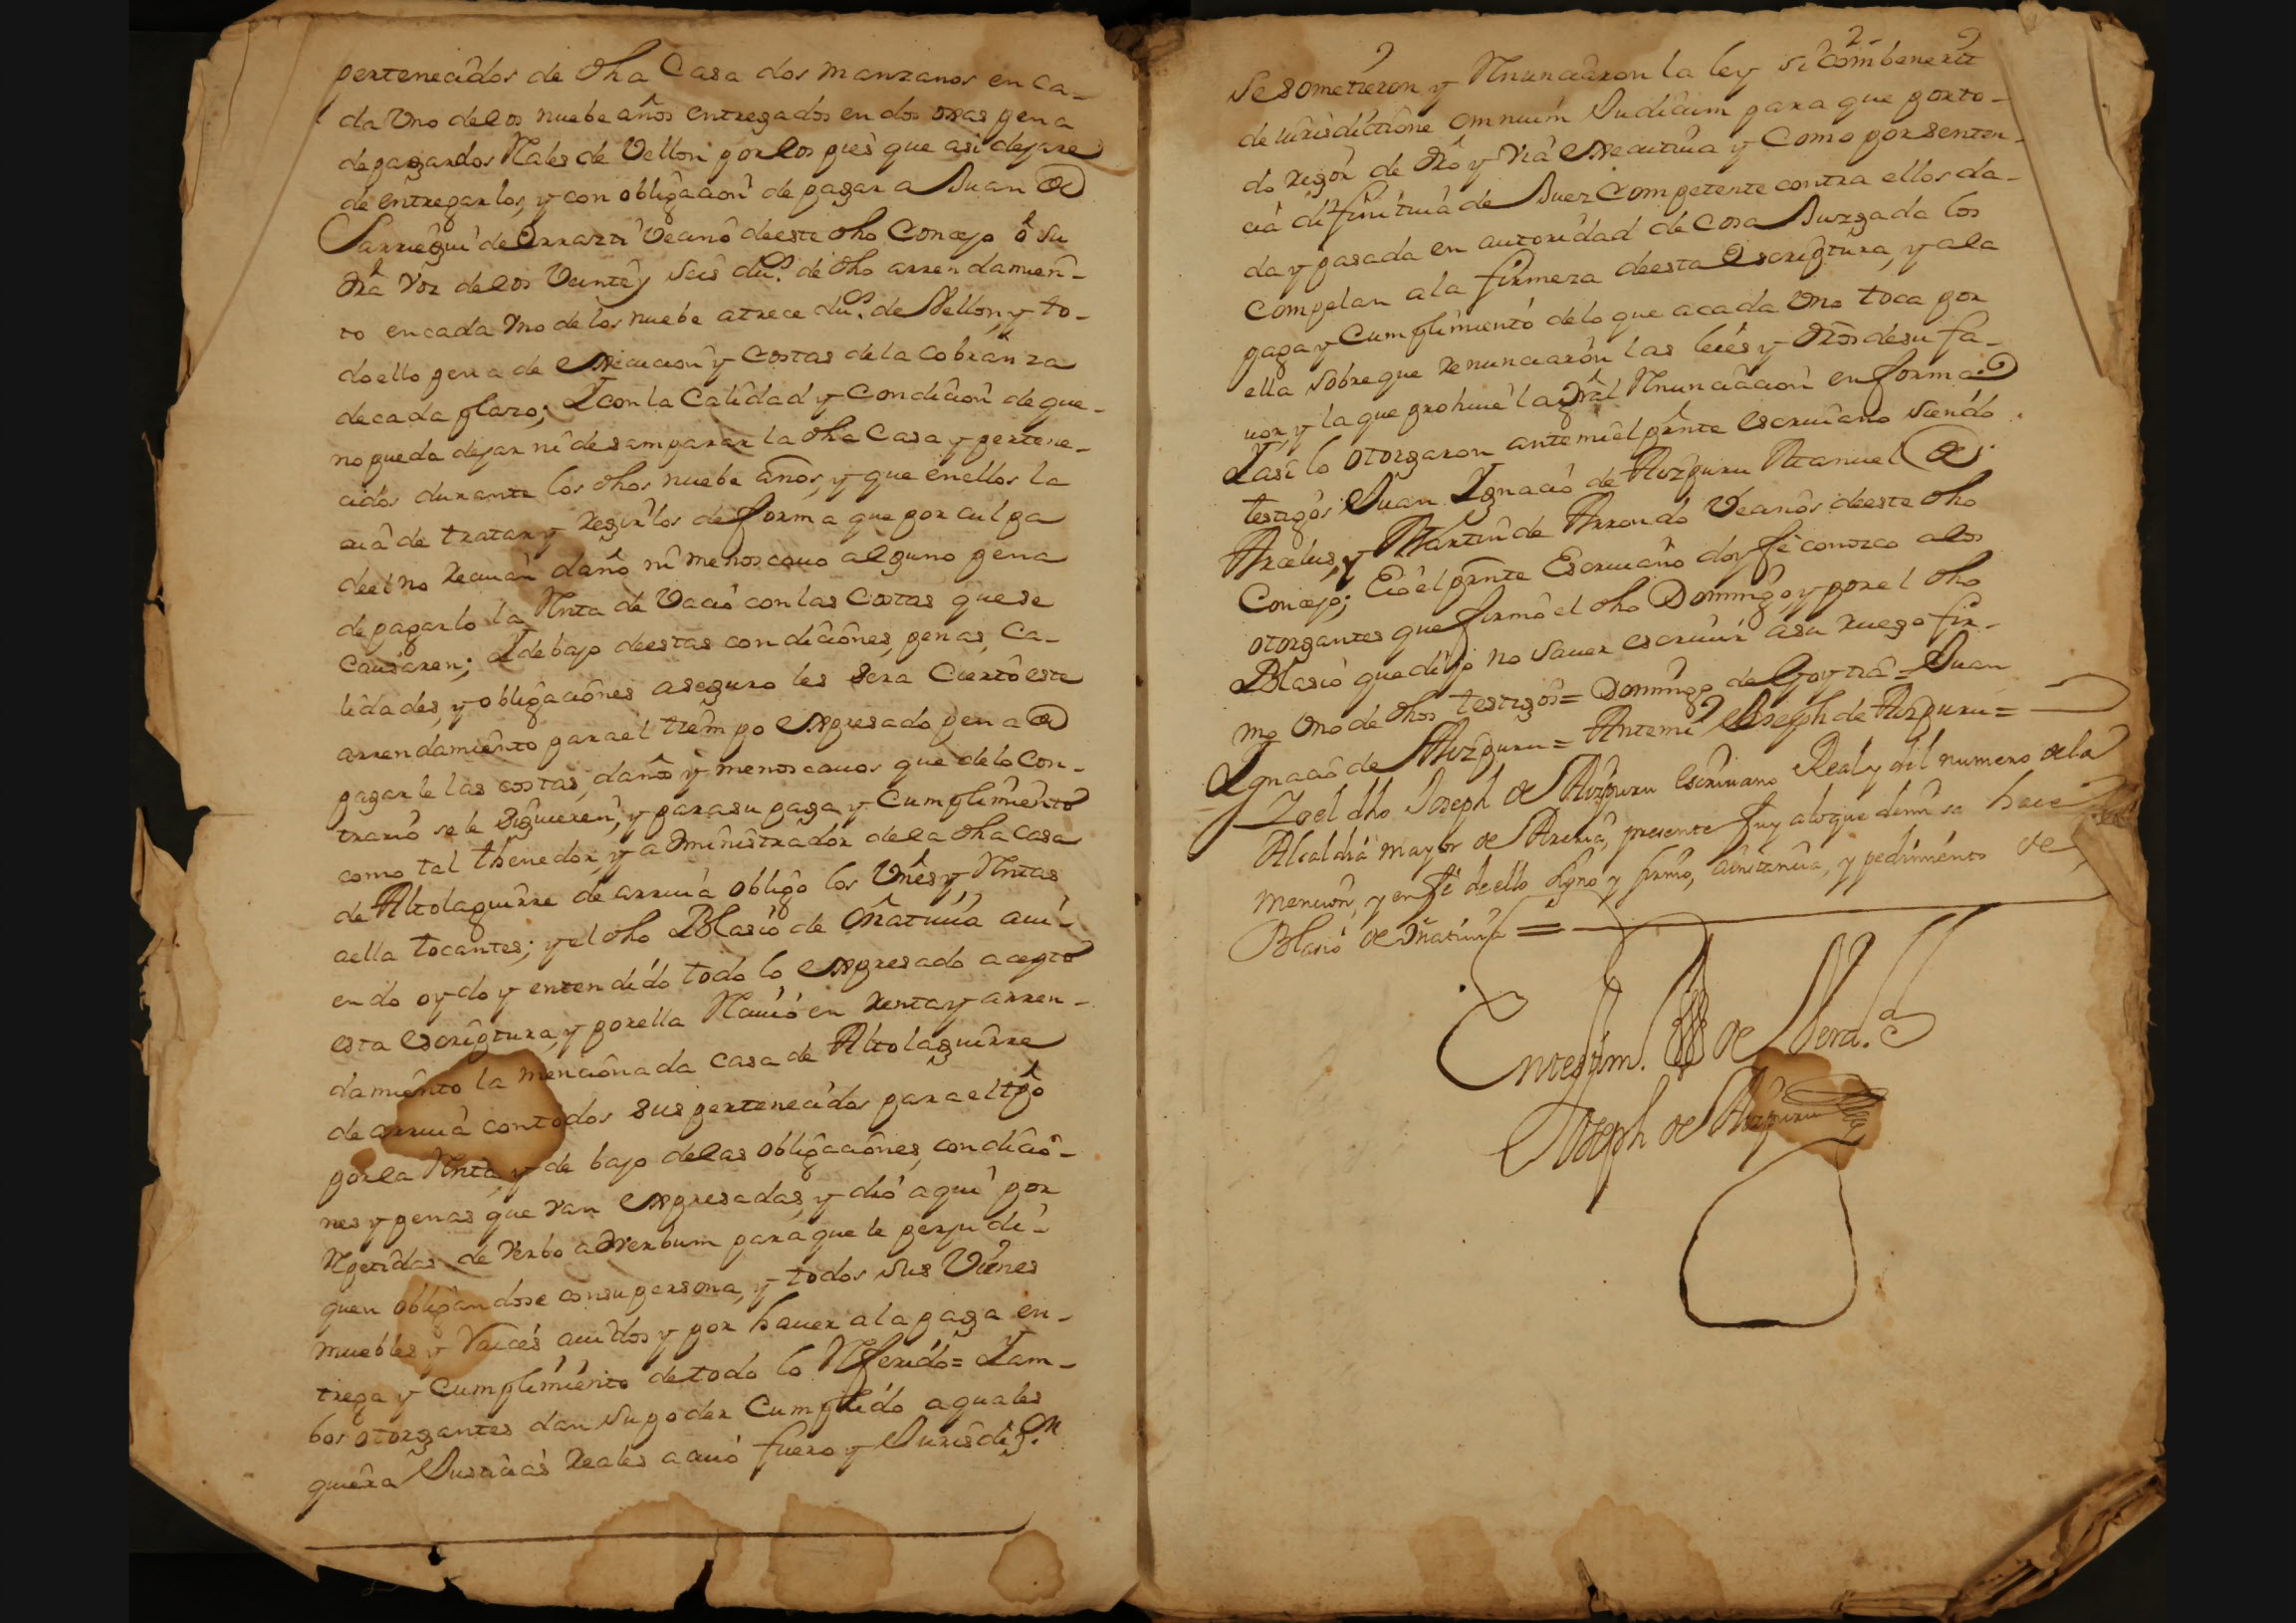 pertenecidos de dha Casa dos manzanos en ca-
da Uno de los nuebe años entregados en dos oxas pena
de pagar dos Rales de Vellon por los pies que asi dejare
de entregarlos, y con obligacion de pagar a Juan de
Sarriegui de Errazti Vecino de este dho Concejo o su
dra voz de los Veinte y seis dus. de dho arrendamien-
to en cada Uno de los nuebe a trece dus. de Vellon, y to-
do ello pena de execucion y Costas de la cobranza
de cada plazo; Y con la Calidad y Condicion de que
no pueda dejar ni desamparar la dha Casa y pertene-
cidos durante los dhos nuebe años, y que en ellos la
aiâ de tratar y regirlos de forma que por culpa
de el no reciuan daño ni menoscauo alguno pena
de pagarlo la Rnta de Vacio con las Costas que se
Causaren; Y debajo de estas condiciones, penas, Ca-
lidades, y obligaciones aseguro les sera Cierto este
arrendamiento para el tiempo expresado pena de
pagarle las costas, daños y menoscauos que de lo Con-
trario se le siguieren, y para su paga y Cumplimiento
como tal thenedor, y administrador de la dha Casa
de Altolaguirre de arriua obligo los Vnes y Rntas
a ella tocantes; y el dho Blasio de Oñatiuia aui-
endo oydo y entendido todo lo expresado acepto
esta escriptura, y por ella Rauio en renta y arren-
damiento la mencionada casa de Altolaguirre
de arriua con todos sus pertenecidos para el tpo
por la Rnta, y de bajo de las obligaciones, condicio-
nes y penas que van expresadas, y dió aqui por
Rpetidas de Verbo adverbum para que le perjudi-
quen obligandose con su persona, y todos sus Vienes
muebles y raices auidos y por hauer a la paga en-
trega y Cumplimiento de todo lo Rferido= Y am-
bos otorgantes dan su poder Cumplido a quales
quiera Justicias Reales a cuio fuero y Jurisdiz.n
Se sometieron y Rnunciaron la ley si combenerit
de iurisdictione omnium Judicum para que por to-
do rigor de dro y via executiua y Como por senten-
cia difinitiua de Juez Competente contra ellos da-
da y pasada en autoridad de Cosa Juzgada los
Compelan a la firmeza de esta Escriptura, y a la
paga y Cumplimiento de lo que a cada Uno toca por
ella sobre que renunciaron las leies y dros de su fa-
uor, y la que prohiue la gral Rnunciacion en forma
Y asi lo otorgaron ante mi el prnte escriuano siendo
testigos Juan Ygnacio de Aizpuru Manuel de
Arcelus, y Martin de Arrondo Vecinos de este dho
Concejo; E io el prnte Escriuano doy fe conozco a los
otorgantes que firmo el dho Domingo, y por el dho
Blasio que dijo no sauer escriuir a su ruego fir-
mo Uno de dhos testigos= Domingo de Goytia= Juan
Ygnacio de Aizpuru= Ante mi Joseph de Aizpuru=
Yo el dho Joseph de Aizpuru escriuano Real y del numero de la
Alcaldia mayor de Areria, presente fuy a lo que de mi se hace
mencion, y en fe de ello signo y firmo, a instancia, y pedimento de
Blasio de Oñatiuia =
En testim.o de Verd.
Joseph de Aizpuru